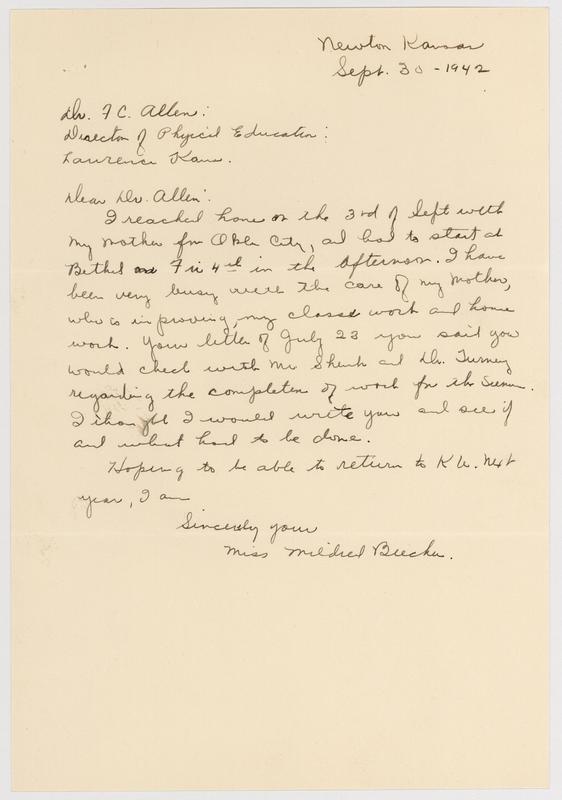 Newton Kansas
Sept. 30 - 1942
Dr. F C. Allen:
Director of Physical Education:
Lawrence Kans.
Dear Dr. Allen:
I reached home on the 3rd of Sept with
my mother from Okla City, and had to start at
Bethel Fri 4th in the afternoon. I have
been very busy with the care of my mother,
who is improving, my class work and home
work. Your letter of July 23 you said you
would check with Mr Shenk and Dr. Turney
regarding the completion of work for the
I thought I would write you and see if
and what had to be done.
Hoping to be able to return to K.U. next
year, I am
Sincerely your
Miss Mildred